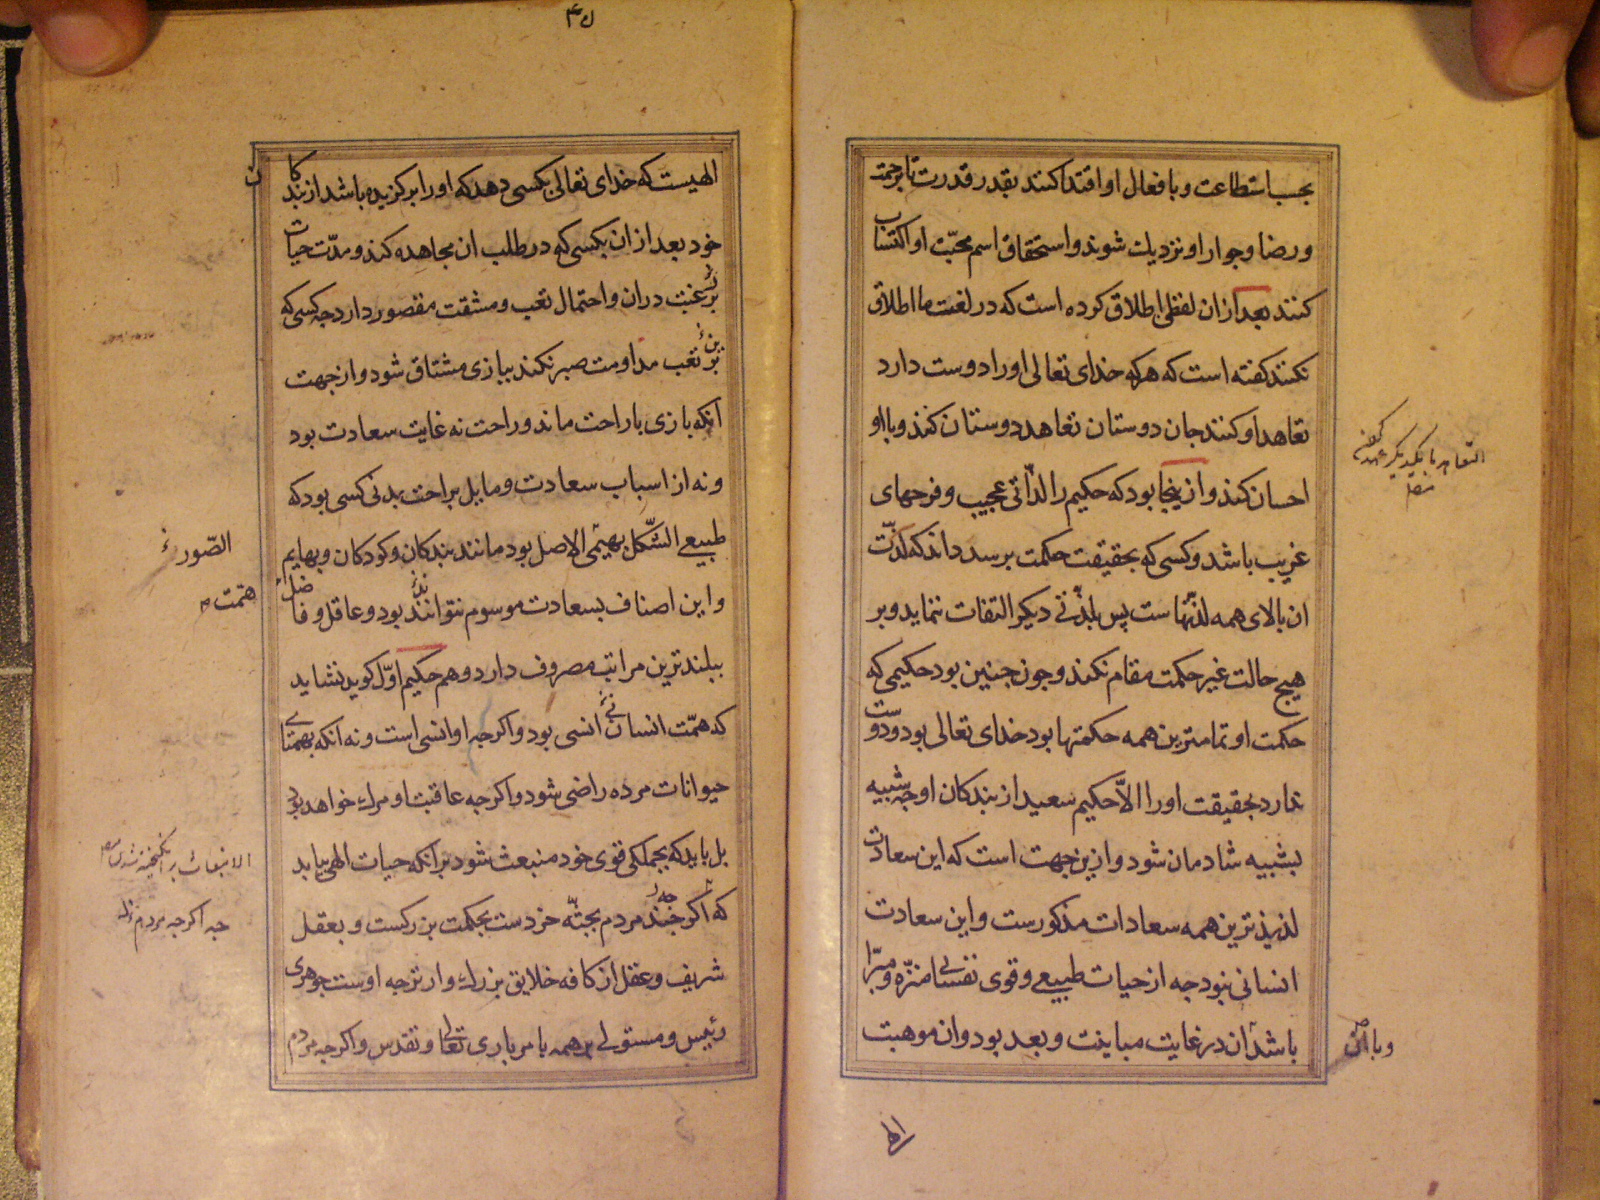 بحسب استطاعت و بافعال او اقتدا کنند بقدر قدرت تا برحمت
و رضا و جوار او نزدیک شوند و استحقاق اسم محبّت او اکتساب
کنند بعد ازان لفظی اطلاق کرده است که در لغت ما اطلاق
نکنند کفته است که هرکه خدای تعالی او را دوست دارد
تعاهد او کنند جان دوستان تعاهد دوستان کنند و با او
احسان کنند و از ینجا بود که حکیم را لذّاتی عجیب و فرحهای
غریب باشد و کسی که بحقیقت حکمت برسد داند که لذّت
ان بالای همه لذّتهاست پس بلذّتی دیکر التفات ننماید و بر
هیچ حالت غیر حکمت مقام نکند و چون چنین بود حکیمی که
حکمت او تمامترین همه حکمتها بود خدای تعالی بود و دوست
ندارد بحقیقت او را الاّ حکیم سعید از بندکان او چه شبیه
بشبیه شادمان شود و ازین جهت است که این سعادت
لذیذترین همه سعادات مذکورست و این سعادت
انسانی نبود چه از حیات طبیعی و قوی نفسانی منزّه و مبرّا
باشد آن در غایت مباینت و بعد بود وان موهبت
التعاهد با یکدیکر عهد کردن
و با آن
۴۵
الهیست که خدای تعالی بکسی دهد که او را برکزیده باشد از بندکان
خود بعد از ان بکسی که در طلب ان مجاهده کند و مدّت حیات
بر رغبت دران و احتمال تعب و مشقت مقصور دارد چه کسی که
بر تعب مداومت صبر نکند ببازی مشتاق شود و از جهت
انکه بازی با راحت ماند و راحت نه غایت سعادت بود
و نه از اسباب سعادت و مایل براحت بدنی کسی بود که
طبیعی الشّکل بهیمی الاصل بود مانند بندکان و کودکان و بهایم
و این اصناف بسعادت موسوم نتوانند بود و عاقل و فاضل
ببلندترین مراتب مصروف دارد و هم حکیم اوّل کوید نشاید
که همّت انسانی انسی بود و اکرچه او انسی است و نه انکه بهمتهای
حیوانات مرده راضی شود و اکرچه عاقبت او مرک خواهد بود
بل باید که بجملکی قوی خود منبعث شود برانکه حیات الهی بیابد
که اکر چند مردم بجثّه خردست بحکمت بزرکست و بعقل
شریف و عقل از کافه خلایق بزرک وار ترچه اوست جوهری
رئیس و مستولی بر همه بامر باری تعالی و تقدس و اکرچه مردم
الصّورة
همت
الانبعاث برانکیخته شدن
چه اکرچه مردم